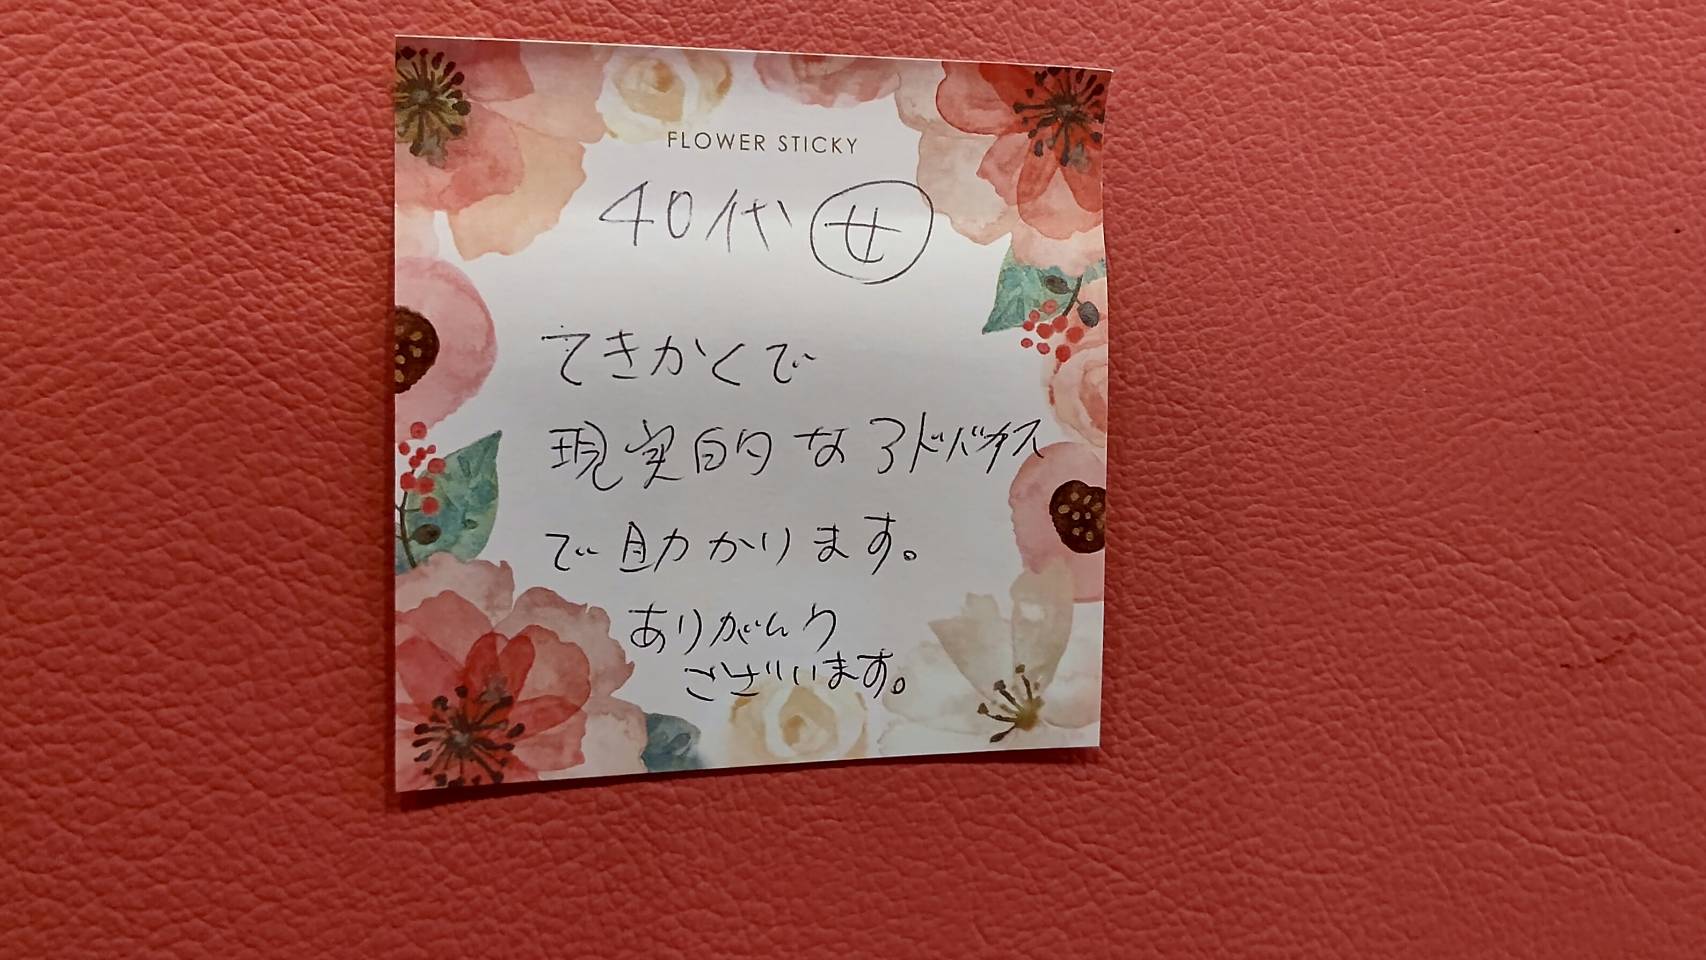 FLOWER STICKY
40代 女
てきかくで
現実的なアドバイス
で助かります。
ありがとう
ございます。